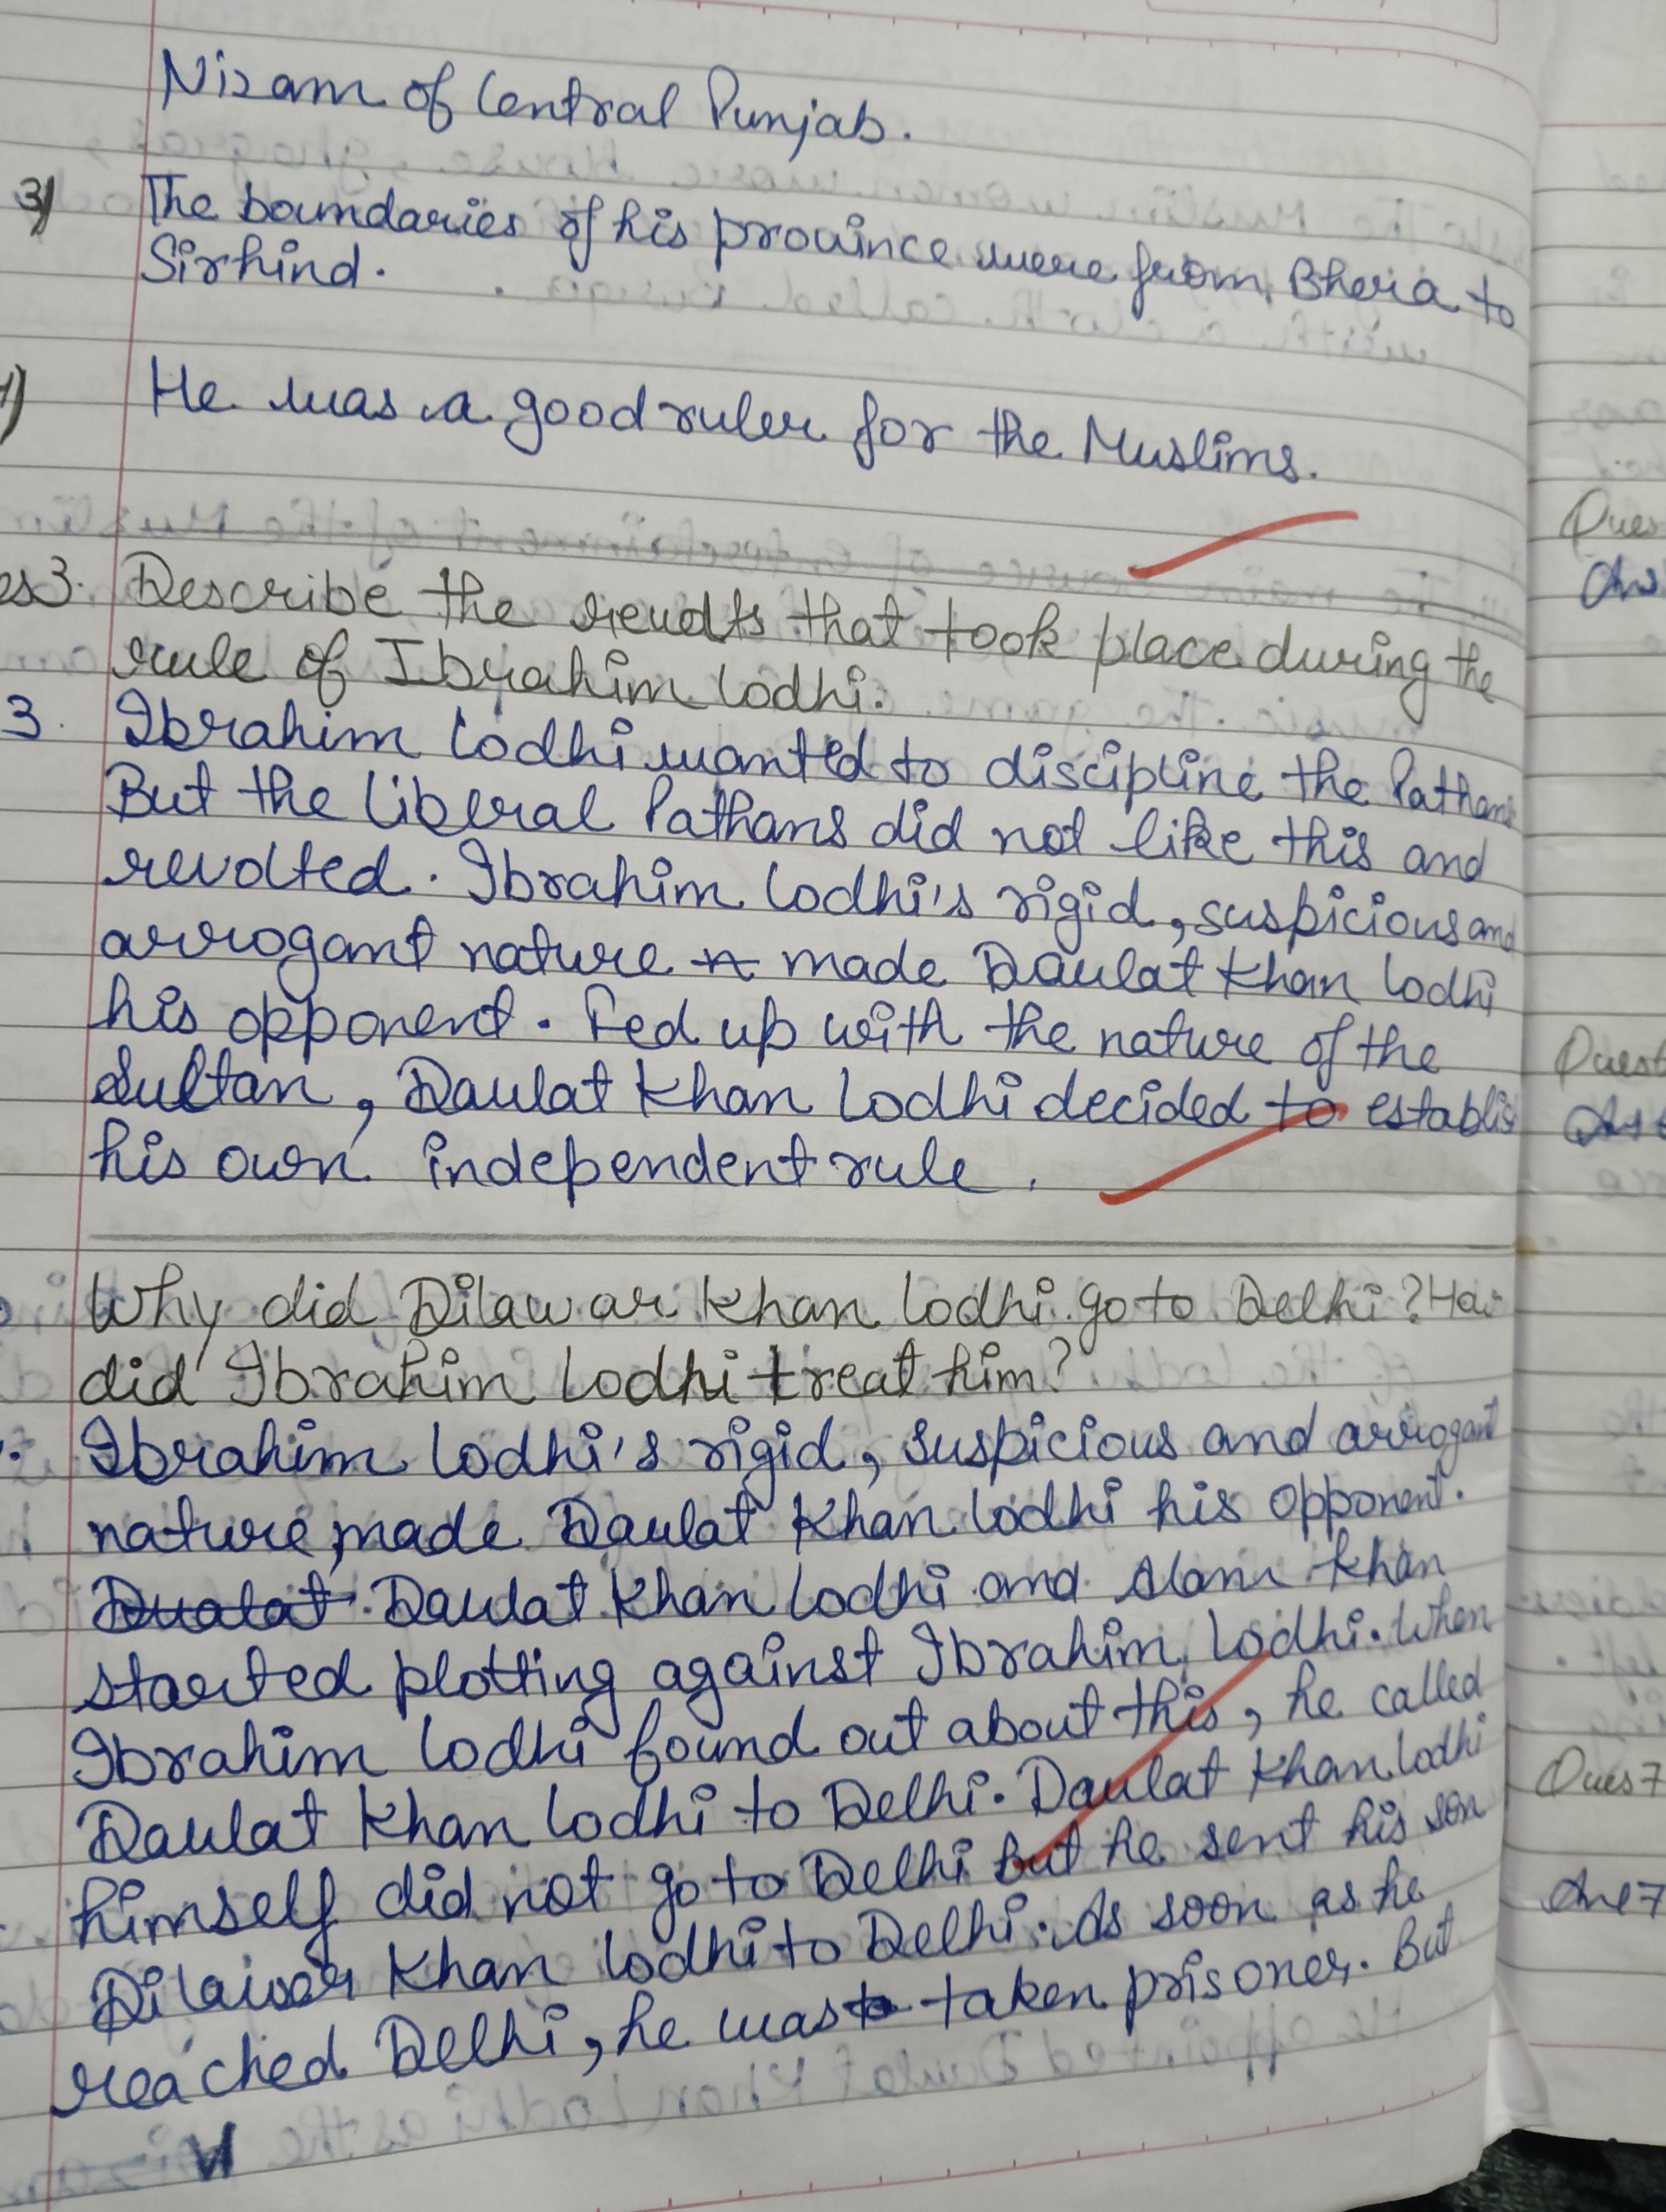 Nizam of Central Punjab.
3) The boundaries of his province were from Bhera to
Sirhind.
He was a good ruler for the Muslims.
es3. Describe the revolts that took place during the
rule of Ibrahim Lodhi.
3. Ibrahim Lodhi wanted to discipline the Pathans
But the liberal Pathans did not like this and
revolted. Ibrahim Lodhi's rigid, suspicious and
arrogant nature made Daulat Khan Lodhi
his opponent. Fed up with the nature of the
Sultan, Daulat Khan Lodhi decided to establis
his own independent rule.
Why did Dilawar Khan Lodhi go to Delhi? How
did Ibrahim Lodhi treat him?
Ibrahim Lodhi's rigid, suspicious and arrogant
nature, made Daulat Khan Lodhi his opponent.
Dualat Daulat Khan Lodhi and Alam Khan
started plotting against Ibrahim Lodhi. When
Ibrahim Lodhi found out about this, he called
Daulat Khan Lodhi to Delhi. Daulat Khan Lodhi
himself did not go to Delhi but he sent his son
Dilawar Khan Lodhi to Delhi. As soon as he
reached Delhi, he was taken prisoner. But
Ques
Ans
Quest
Ans 6
Ques 7
Ans 7